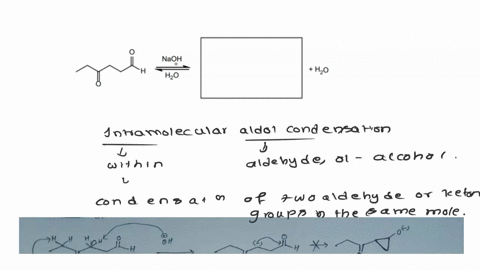 O
O
H
NaOH
H₂O
+ H₂O
Intramolecular aldol condensation
within aldehyde, ol - alcohol.
condensation of two aldehyde or keton
groups in the same mole.